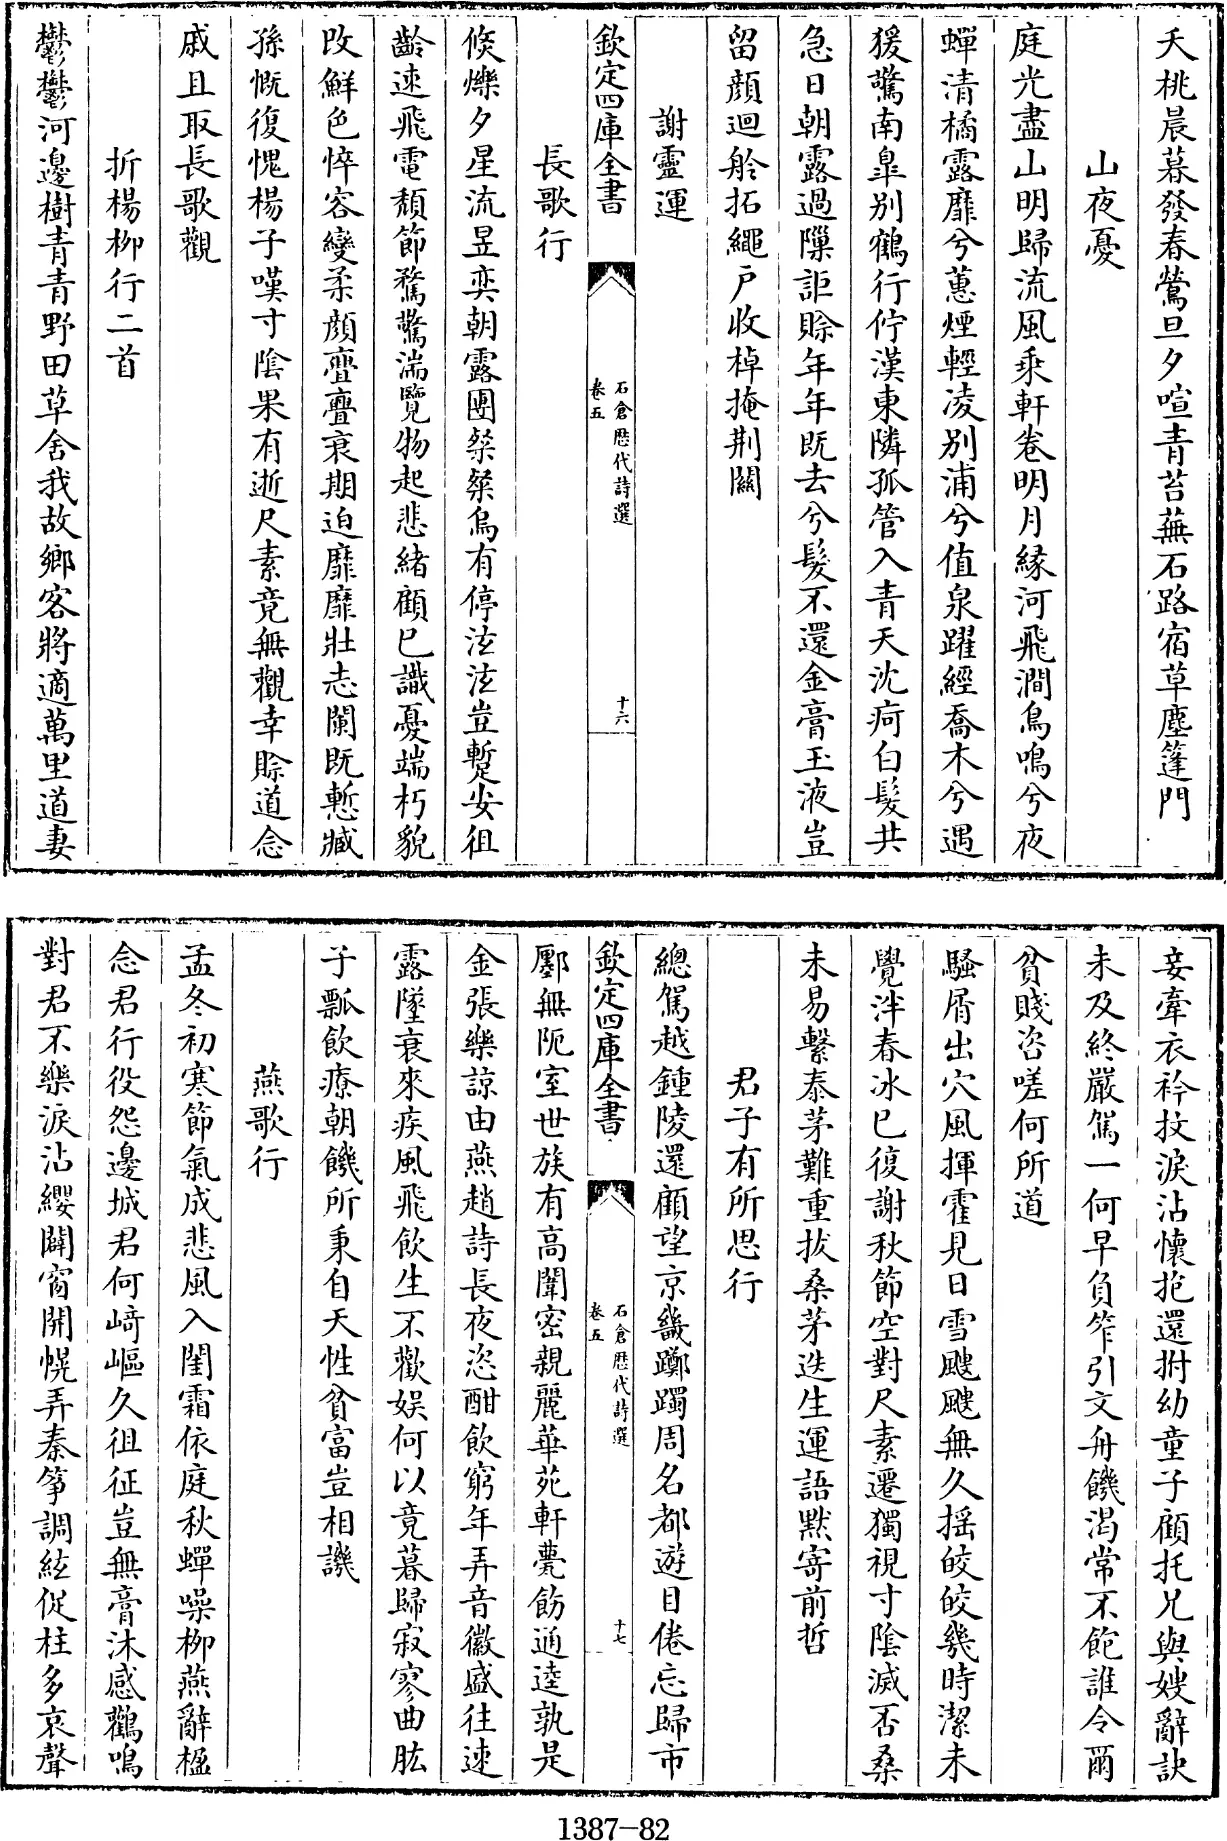 夭桃晨暮發春鶯旦夕喧青苔蕪石路宿草塵蓬門
山夜憂
庭光盡山明歸流風乘軒卷明月緣河飛澗鳥鳴兮夜
蟬清橘露靡兮蕙煙輕凌別浦兮值泉躍經喬木兮遇
猨驚南臯別鶴行佇漢東隣孤管入青天沈痾白髮共
急日朝露過隟詎賖年年既去兮髮不還金膏玉液豈
留顏迴舲拓繩戶收棹掩荆關
謝靈運
欽定四庫全書
石倉歷代詩選
卷五
十六
長歌行
倐爍夕星流昱奕朝露團粲粲烏有停泫泫豈蹔安徂
齡速飛電頹節騖驚湍覽物起悲緒顧已識憂端朽貌
改鮮色悴容變柔顏亹亹衰期迫靡靡壯志闌既慙臧
孫慨復愧楊子嘆寸陰果有逝尺素竟無觀幸賖道念
戚且取長歌觀
折楊柳行二首
鬱鬱河邊樹青青野田草舍我故鄉客將適萬里道妻
妾牽衣袊抆淚沾懷抱還拊幼童子顧托兄與嫂辭訣
未及終嚴駕一何早負笮引文舟饑渴常不飽誰令爾
貧賤咨嗟何所道
騷屑出穴風揮霍見日雪颼颼無久摇皎皎幾時潔未
覺泮春冰已復謝秋節空對尺素遷獨視寸陰滅否桑
未易繫泰茅難重拔桑茅迭生運語默寄前哲
君子有所思行
總駕越鍾陵還顧望京畿躑躅周名都遊目倦忘歸市
欽定四庫全書
石倉歷代詩選
卷五
十七
鄽無阨室世族有高闈密親麗華苑軒甍飭通逵孰是
金張樂諒由燕趙詩長夜恣酣飲窮年弄音徽盛往速
露墜衰來疾風飛飲生不歡娱何以竟暮歸寂寥曲肱
子瓢飲療朝饑所秉自天性貧富豈相譏
燕歌行
孟冬初寒節氣成悲風入閨霜依庭秋蟬噪柳燕辭楹
念君行役怨邊城君何崎嶇久徂征豈無膏沐感鸛鳴
對君不樂淚沾纓闢窗開幌弄秦筝調絃促柱多哀聲
1387-82